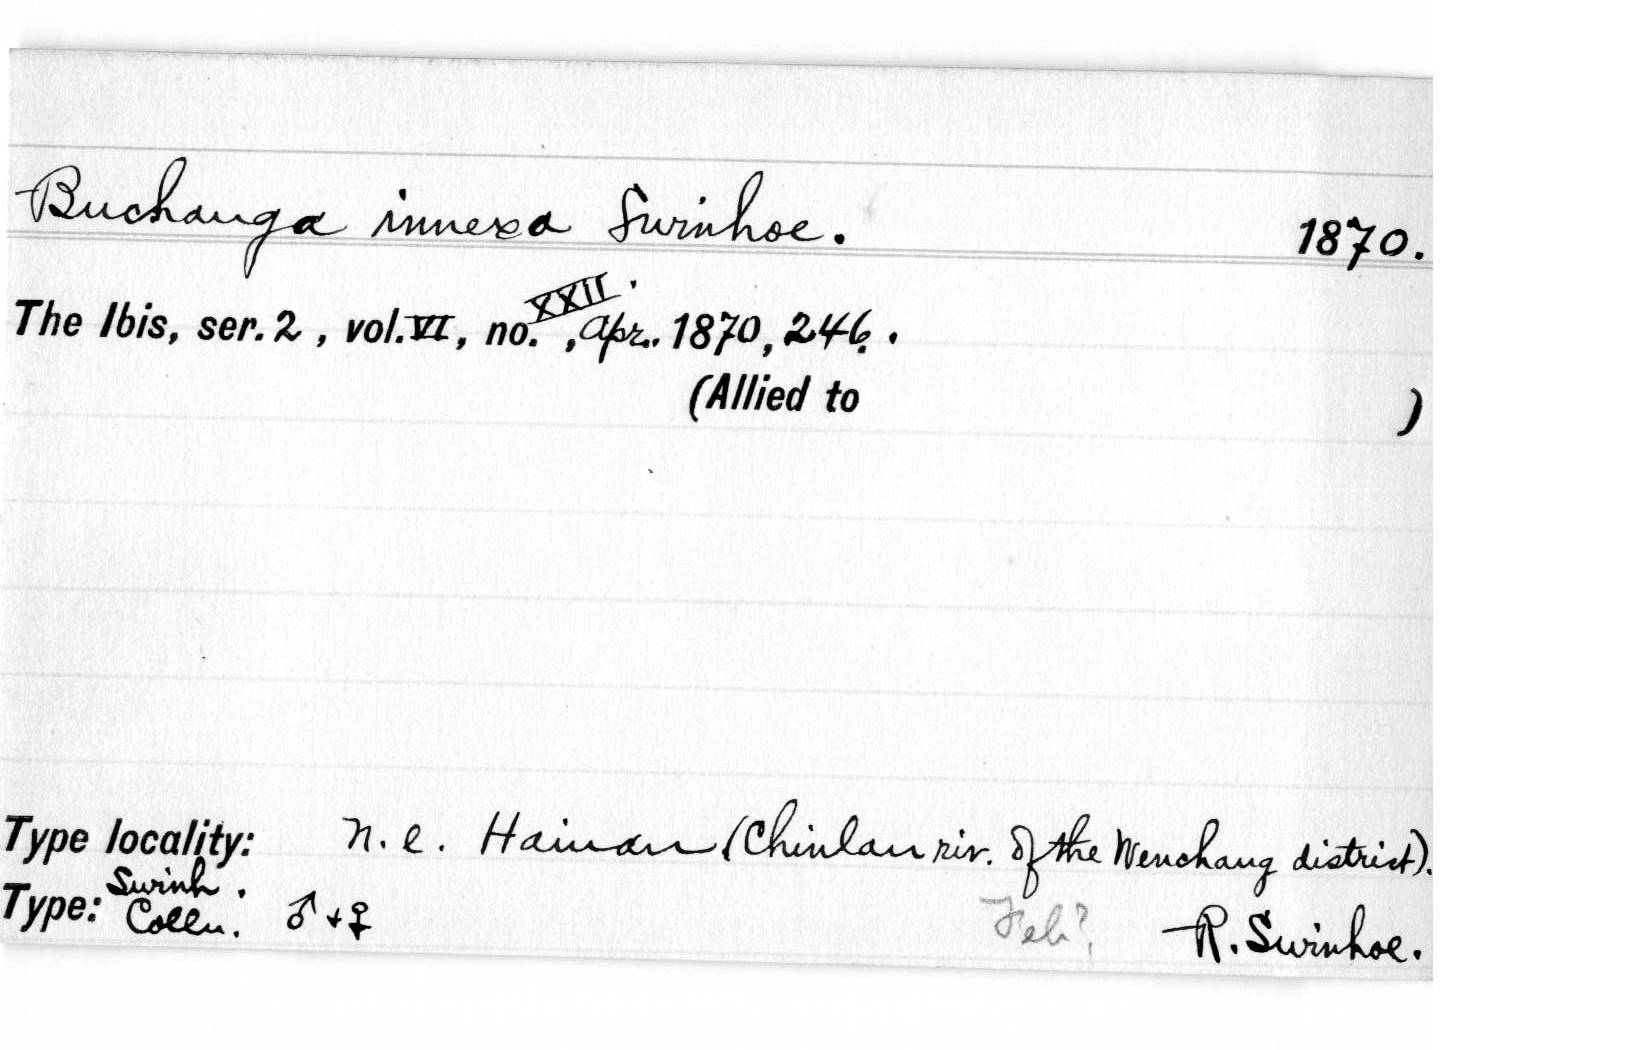 Buchanga innexa Swinhoe. 1870.
The Ibis, ser. 2, vol. VI, no. XXII., Apr. 1870, 246.
(Allied to )
Type locality: N.E. Hainan (Chinlan riv. of the Wenchang district).
Type: Swinh. Colln. ♂ + ♀ Feb? R. Swinhoe.